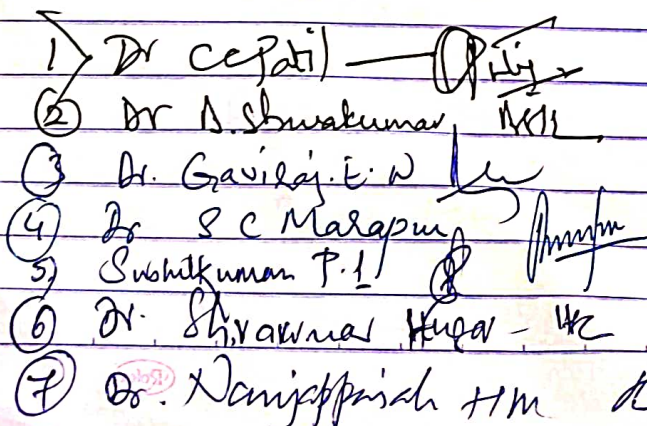 1) Dr CCPatil
2 Dr D. Shivakumar
3 Dr. Gaviraj. E. N
4 Dr S C Marapur
5) Sushilkumar P. L
6 Dr. Shivakumar Hugar
7 Dr. Nanjappaiah HM